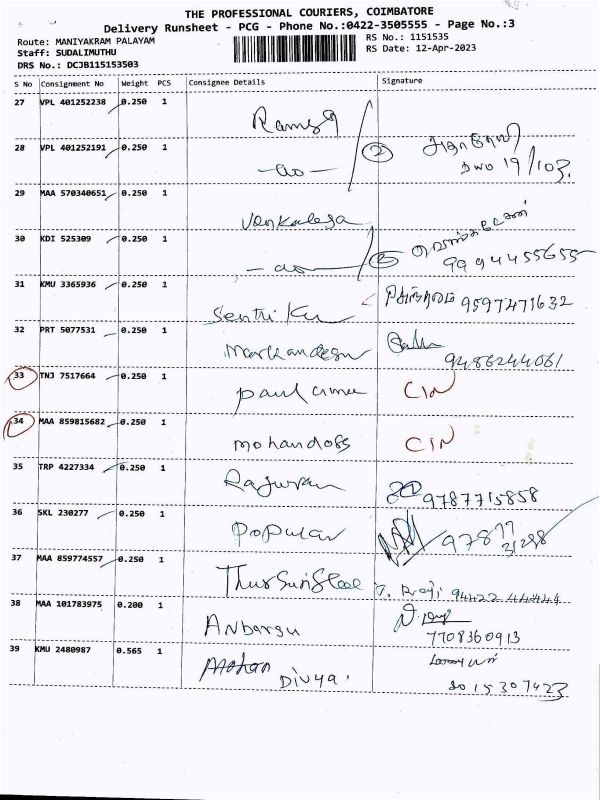 THE PROFESSIONAL COURIERS, COIMBATORE
Delivery Runsheet - PCG - Phone No.:0422-3505555 - Page No.:3
Route: MANIYAKRAM PALAYAM
RS No.: 1151535
Staff: SUDALIMUTHU
RS Date: 12-Apr-2023
DRS No.: DCJB115153503
S No Consignment No Weight PCS Consignee Details Signature
27 VPL 401252238 0.250 1 Ramesh
28 VPL 401252191 0.250 1 -do- 2 19/103.
29 MAA 570340651 0.250 1 Venkalesa
30 KDI 525309 0.250 1 -do- 2 வெங்கடேசன் 9994455655
31 KMU 3365936 0.250 1 Senthi Ku 9597471632
32 PRT 5077531 0.250 1 Markandesn 9486244061
33 TNJ 7517664 0.250 1 Paul CIN
34 MAA 859815682 0.250 1 mohandoss CIN
35 TRP 4227334 0.250 1 9787715858
36 SKL 230277 0.250 1 Popular 97877 31298
37 MAA 859774557 0.250 1 94422 44444
38 MAA 101783975 0.200 1 Anbarsu 7708360913
39 KMU 2480987 0.565 1 Mohan Divya. 8015307423